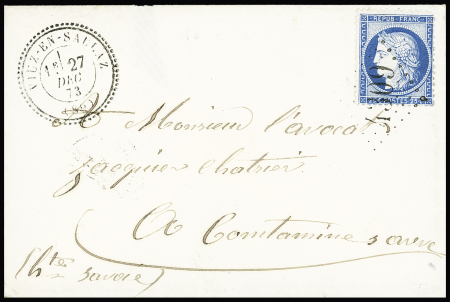 VIUZ-EN-SALLAZ
1E
27
DEC
73
(89)
REPUB. FRANC.
Monsieur l'avocat
Jacquier Chatrier
A Contamine s arve
(hte savoie)